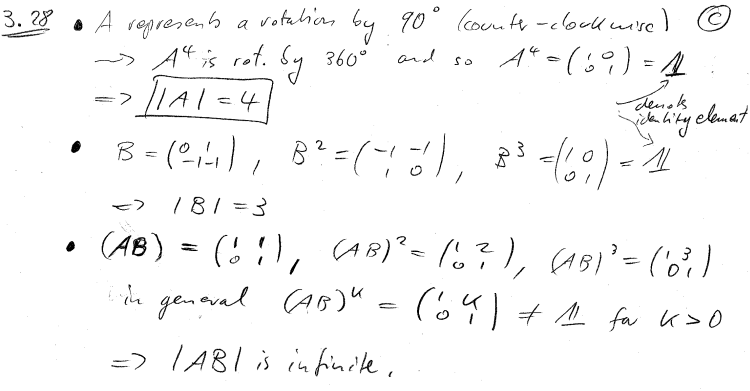 3.28 • A represents a rotation by 90° (counter-clockwise) ©
~> A⁴ is rot. by 360° and so A⁴ = (1 0 / 0 1) = 𝟙
=> |A| = 4
denotes identity element
• B = (0 1 / -1 -1), B² = (-1 -1 / 1 0), B³ = (1 0 / 0 1) = 𝟙
=> |B| = 3
• (AB) = (1 1 / 0 1), (AB)² = (1 2 / 0 1), (AB)³ = (1 3 / 0 1)
in general (AB)ᵏ = (1 k / 0 1) ≠ 𝟙 for k > 0
=> |AB| is infinite.